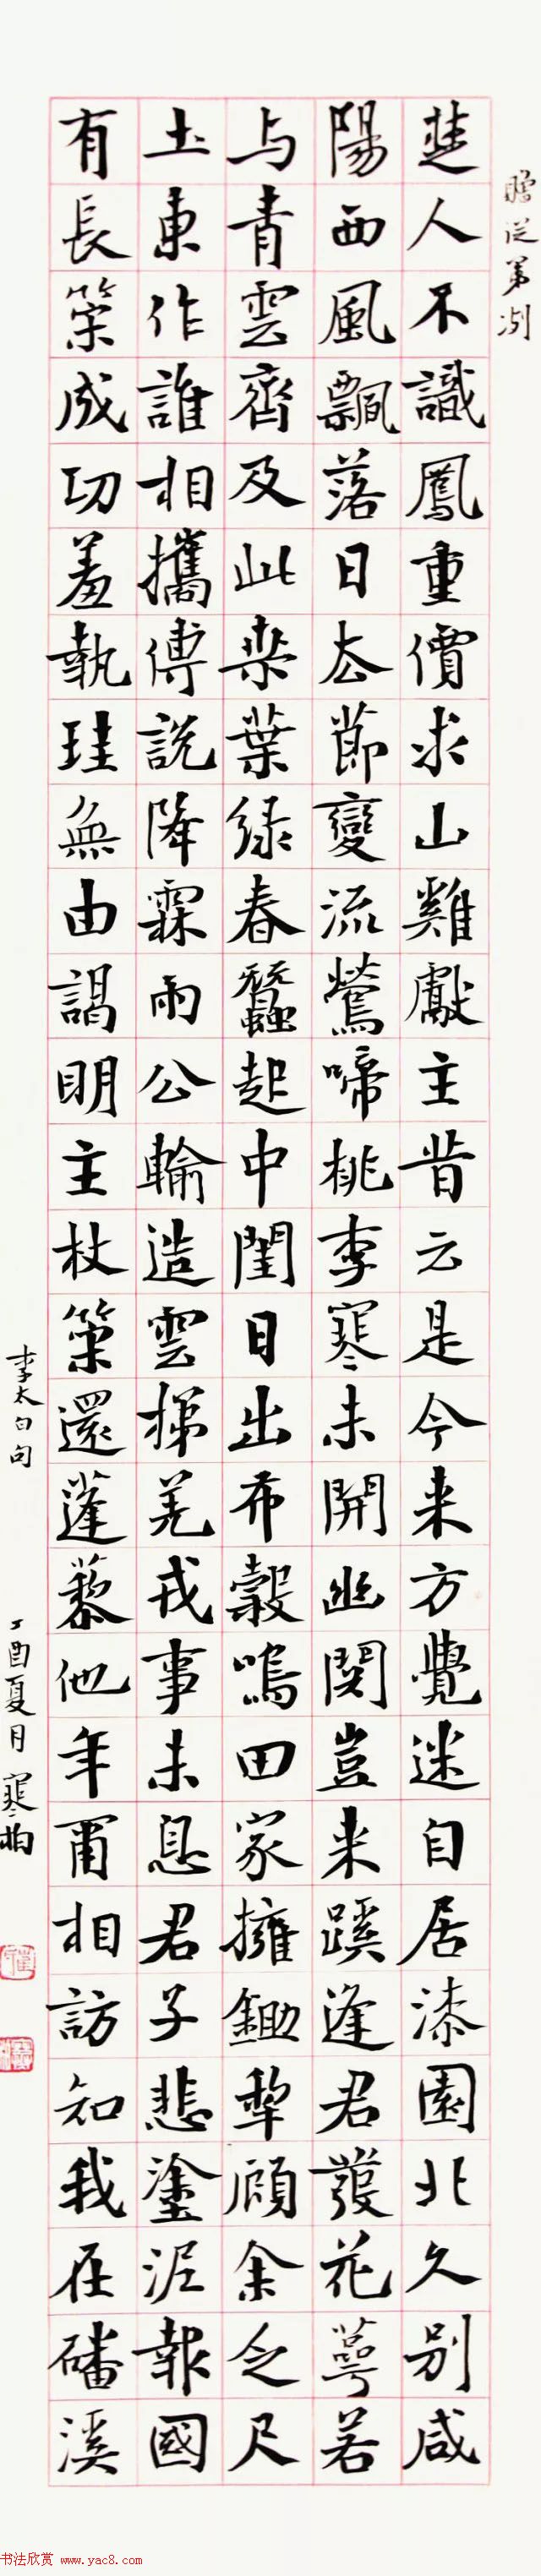 贈從弟冽
楚人不識鳳重價求山雞獻主昔云是今来方覺迷自居漆園北久别咸
陽西風飄落日去節變流鶯啼桃李寒未開幽関豈来蹊逢君發花萼若
与青雲齊及此桑葉绿春蠶起中閨日出布穀鳴田家擁鋤犂顧余乏尺
土東作誰相攜傅説降霖雨公輸造雲梯羌戎事未息君子悲塗泥報國
有長策成功羞執珪無由謁明主杖策還蓬藜他年爾相訪知我在磻溪
李太白句
丁酉夏月寒柏
书法欣赏 www.yac8.com